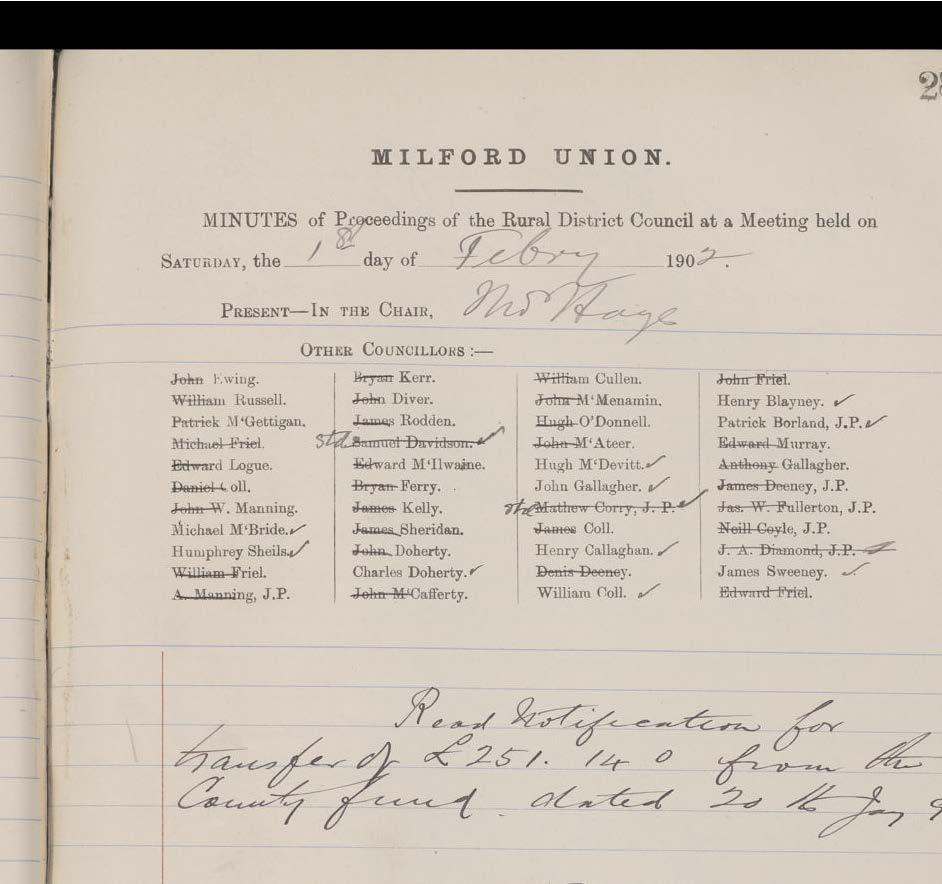 MILFORD UNION.
MINUTES of Proceedings of the Rural District Council at a Meeting held on
SATURDAY, the 1st day of Febry 1902.
PRESENT—IN THE CHAIR,
OTHER COUNCILLORS :—
John Ewing.
William Russell.
Patrick M'Gettigan.
Michael Friel.
Edward Logue.
Daniel Coll.
John W. Manning.
Michael M'Bride.
Humphrey Sheils.
William Friel.
A. Manning, J.P.
Bryan Kerr.
John Diver.
James Rodden.
Std Samuel Davidson.
Edward M'Ilwaine.
Bryan Ferry.
James Kelly.
James Sheridan.
John Doherty.
Charles Doherty.
John M'Cafferty.
William Cullen.
John M'Menamin.
Hugh O'Donnell.
John M'Ateer.
Hugh M'Devitt.
John Gallagher.
Std Mathew Corry, J. P.
James Coll.
Henry Callaghan.
Denis Deeney.
William Coll.
John Friel.
Henry Blayney.
Patrick Borland, J.P.
Edward Murray.
Anthony Gallagher.
James Deeney, J.P.
Jas. W. Fullerton, J.P.
Neill Coyle, J.P.
J. A. Diamond, J.P.
James Sweeney.
Edward Friel.
Read Notification for
transfer of £251. 14 0 from the
County fund. dated 20th Jany